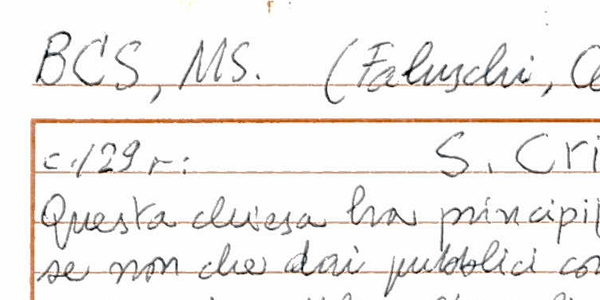 BCS, MS. (Faluschi, C
c. 129 r: S. Cri
Questa chiesa ha principi
se non che dai pubblici co